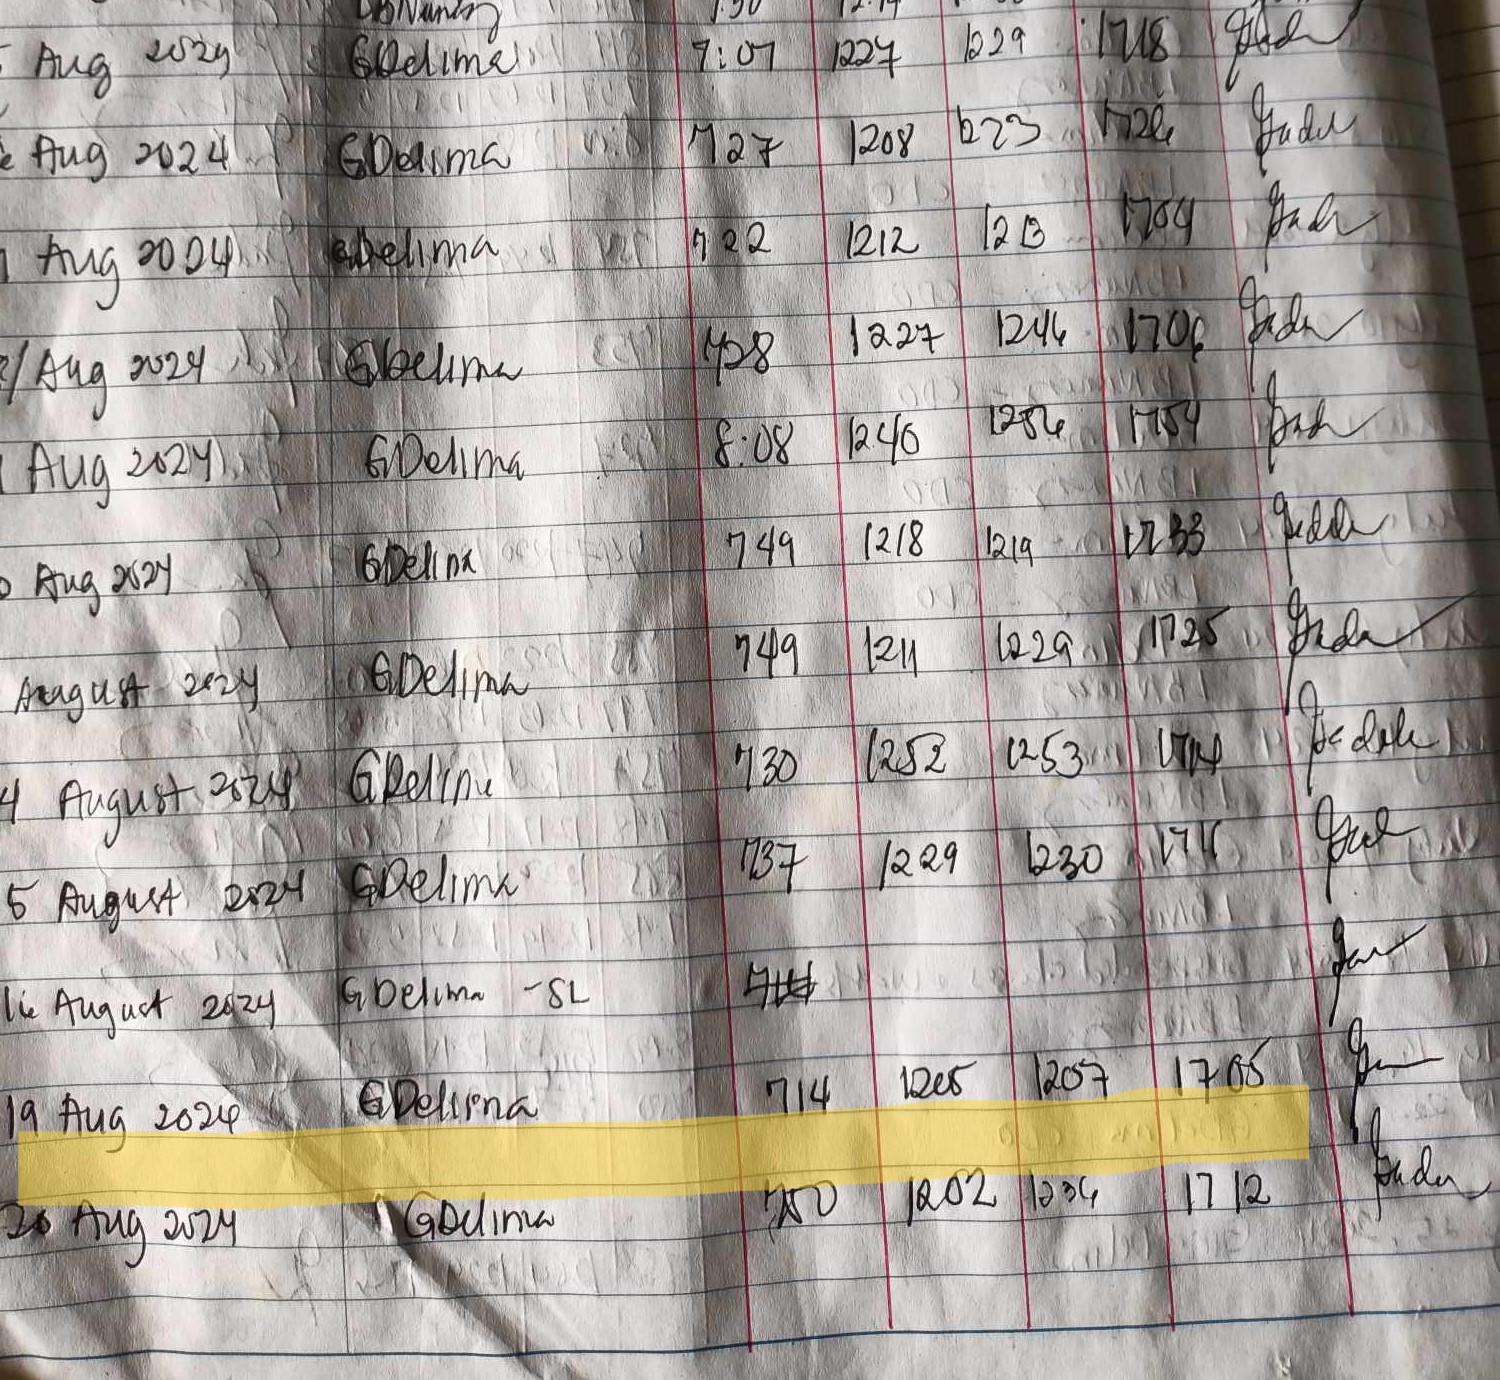 Aug 2024 GDelima 7:07 1227 1229 1718
Aug 2024 GDelima 727 1208 1223
Aug 2024 GDelima 722 1212 1213 1704
Aug 2024 GDelima 728 1227 1246 1706
Aug 2024 GDelima 8:08 1240 1754
Aug 2024 GDelima 749 1218 1219 1733
August 2024 GDelima 749 1211 1229 1725
4 August 2024 GDelima 730 1252 1253
5 August 2024 GDelima 737 1229 1230 1711
16 August 2024 GDelima -SL
19 Aug 2024 GDelima 714 1205 1207 1705
20 Aug 2024 GDelima 750 1202 1234 1712